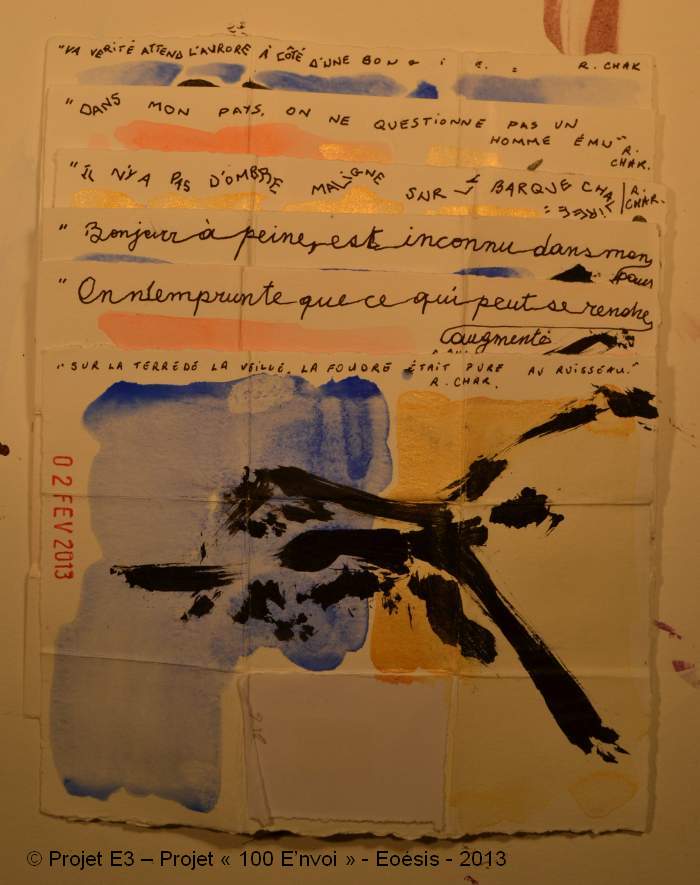 "VA VERITÉ ATTEND L'AURORE À CÔTÉ D'UNE BOUGIE. = R. CHAR
"DANS MON PAYS, ON NE QUESTIONNE PAS UN
HOMME ÉMU" R.
CHAR.
"IL N'Y A PAS D'OMBRE MALIGNE SUR LA BARQUE CHAVIRÉE" = R.
CHAR.
"Bonjour à peine, est inconnu dans mon
pays
"On n'emprunte que ce qui peut se rendre
augmenté
"SUR LA TERRE DE LA VEILLE, LA FOUDRE ÉTAIT PURE AU RUISSEAU."
R. CHAR.
02 FEV 2013
© Projet E3 – Projet « 100 E'nvoi » - Eoésis - 2013